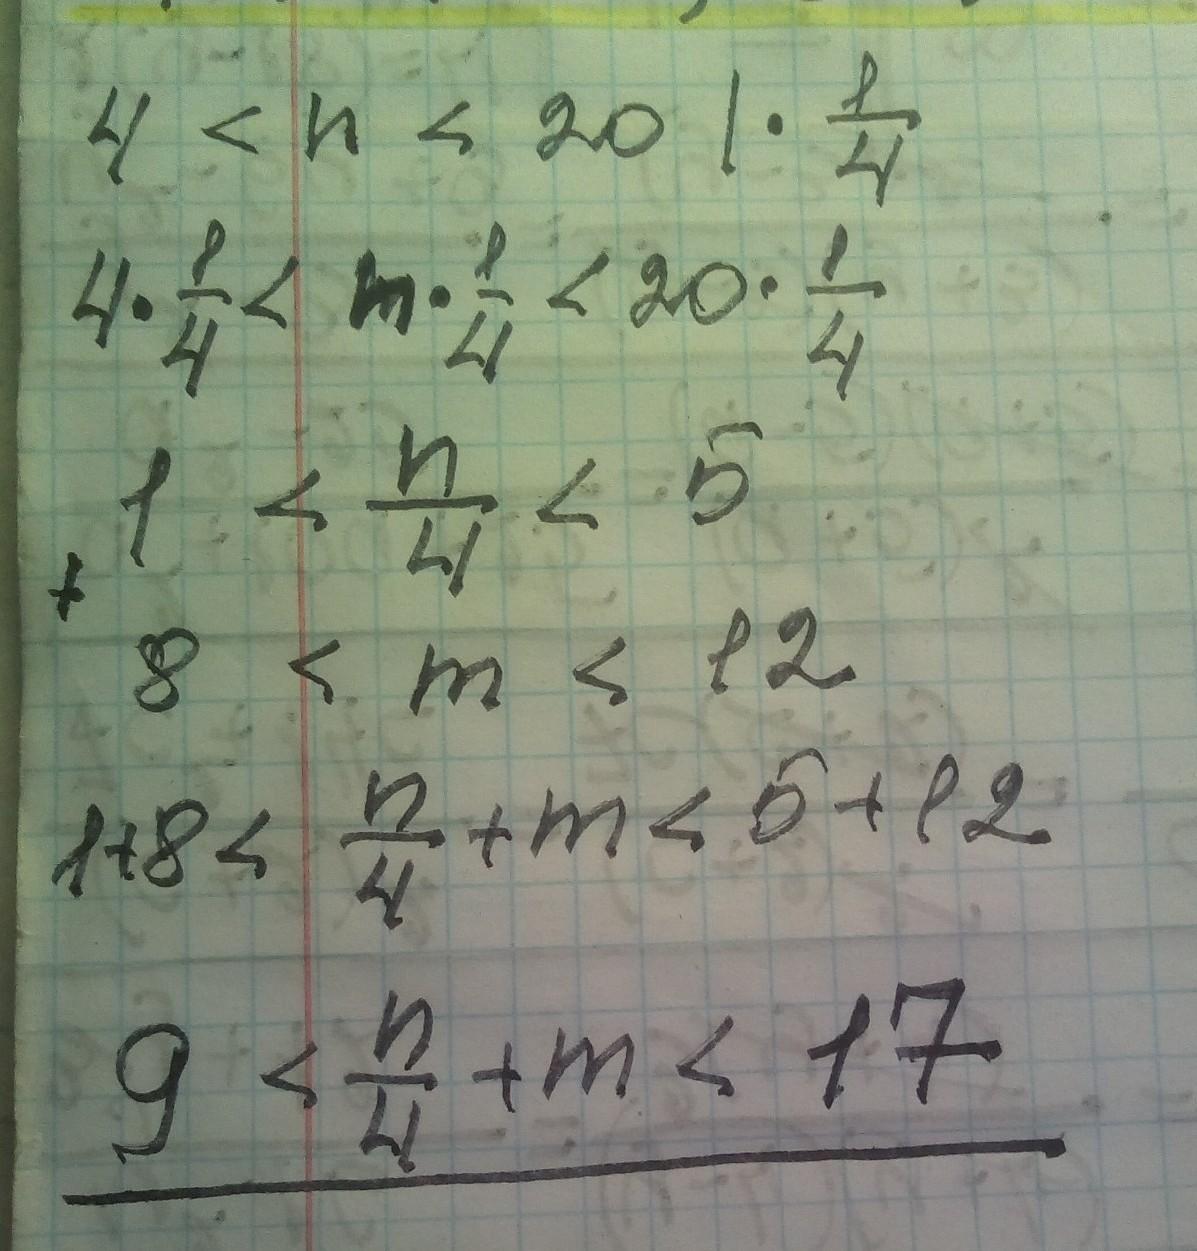 4 < n < 20 | · 1/4
4 · 1/4 < m · 1/4 < 20 · 1/4
1 < n/4 < 5
+
8 < m < 12
1+8 < n/4 + m < 5 + 12
9 < n/4 + m < 17